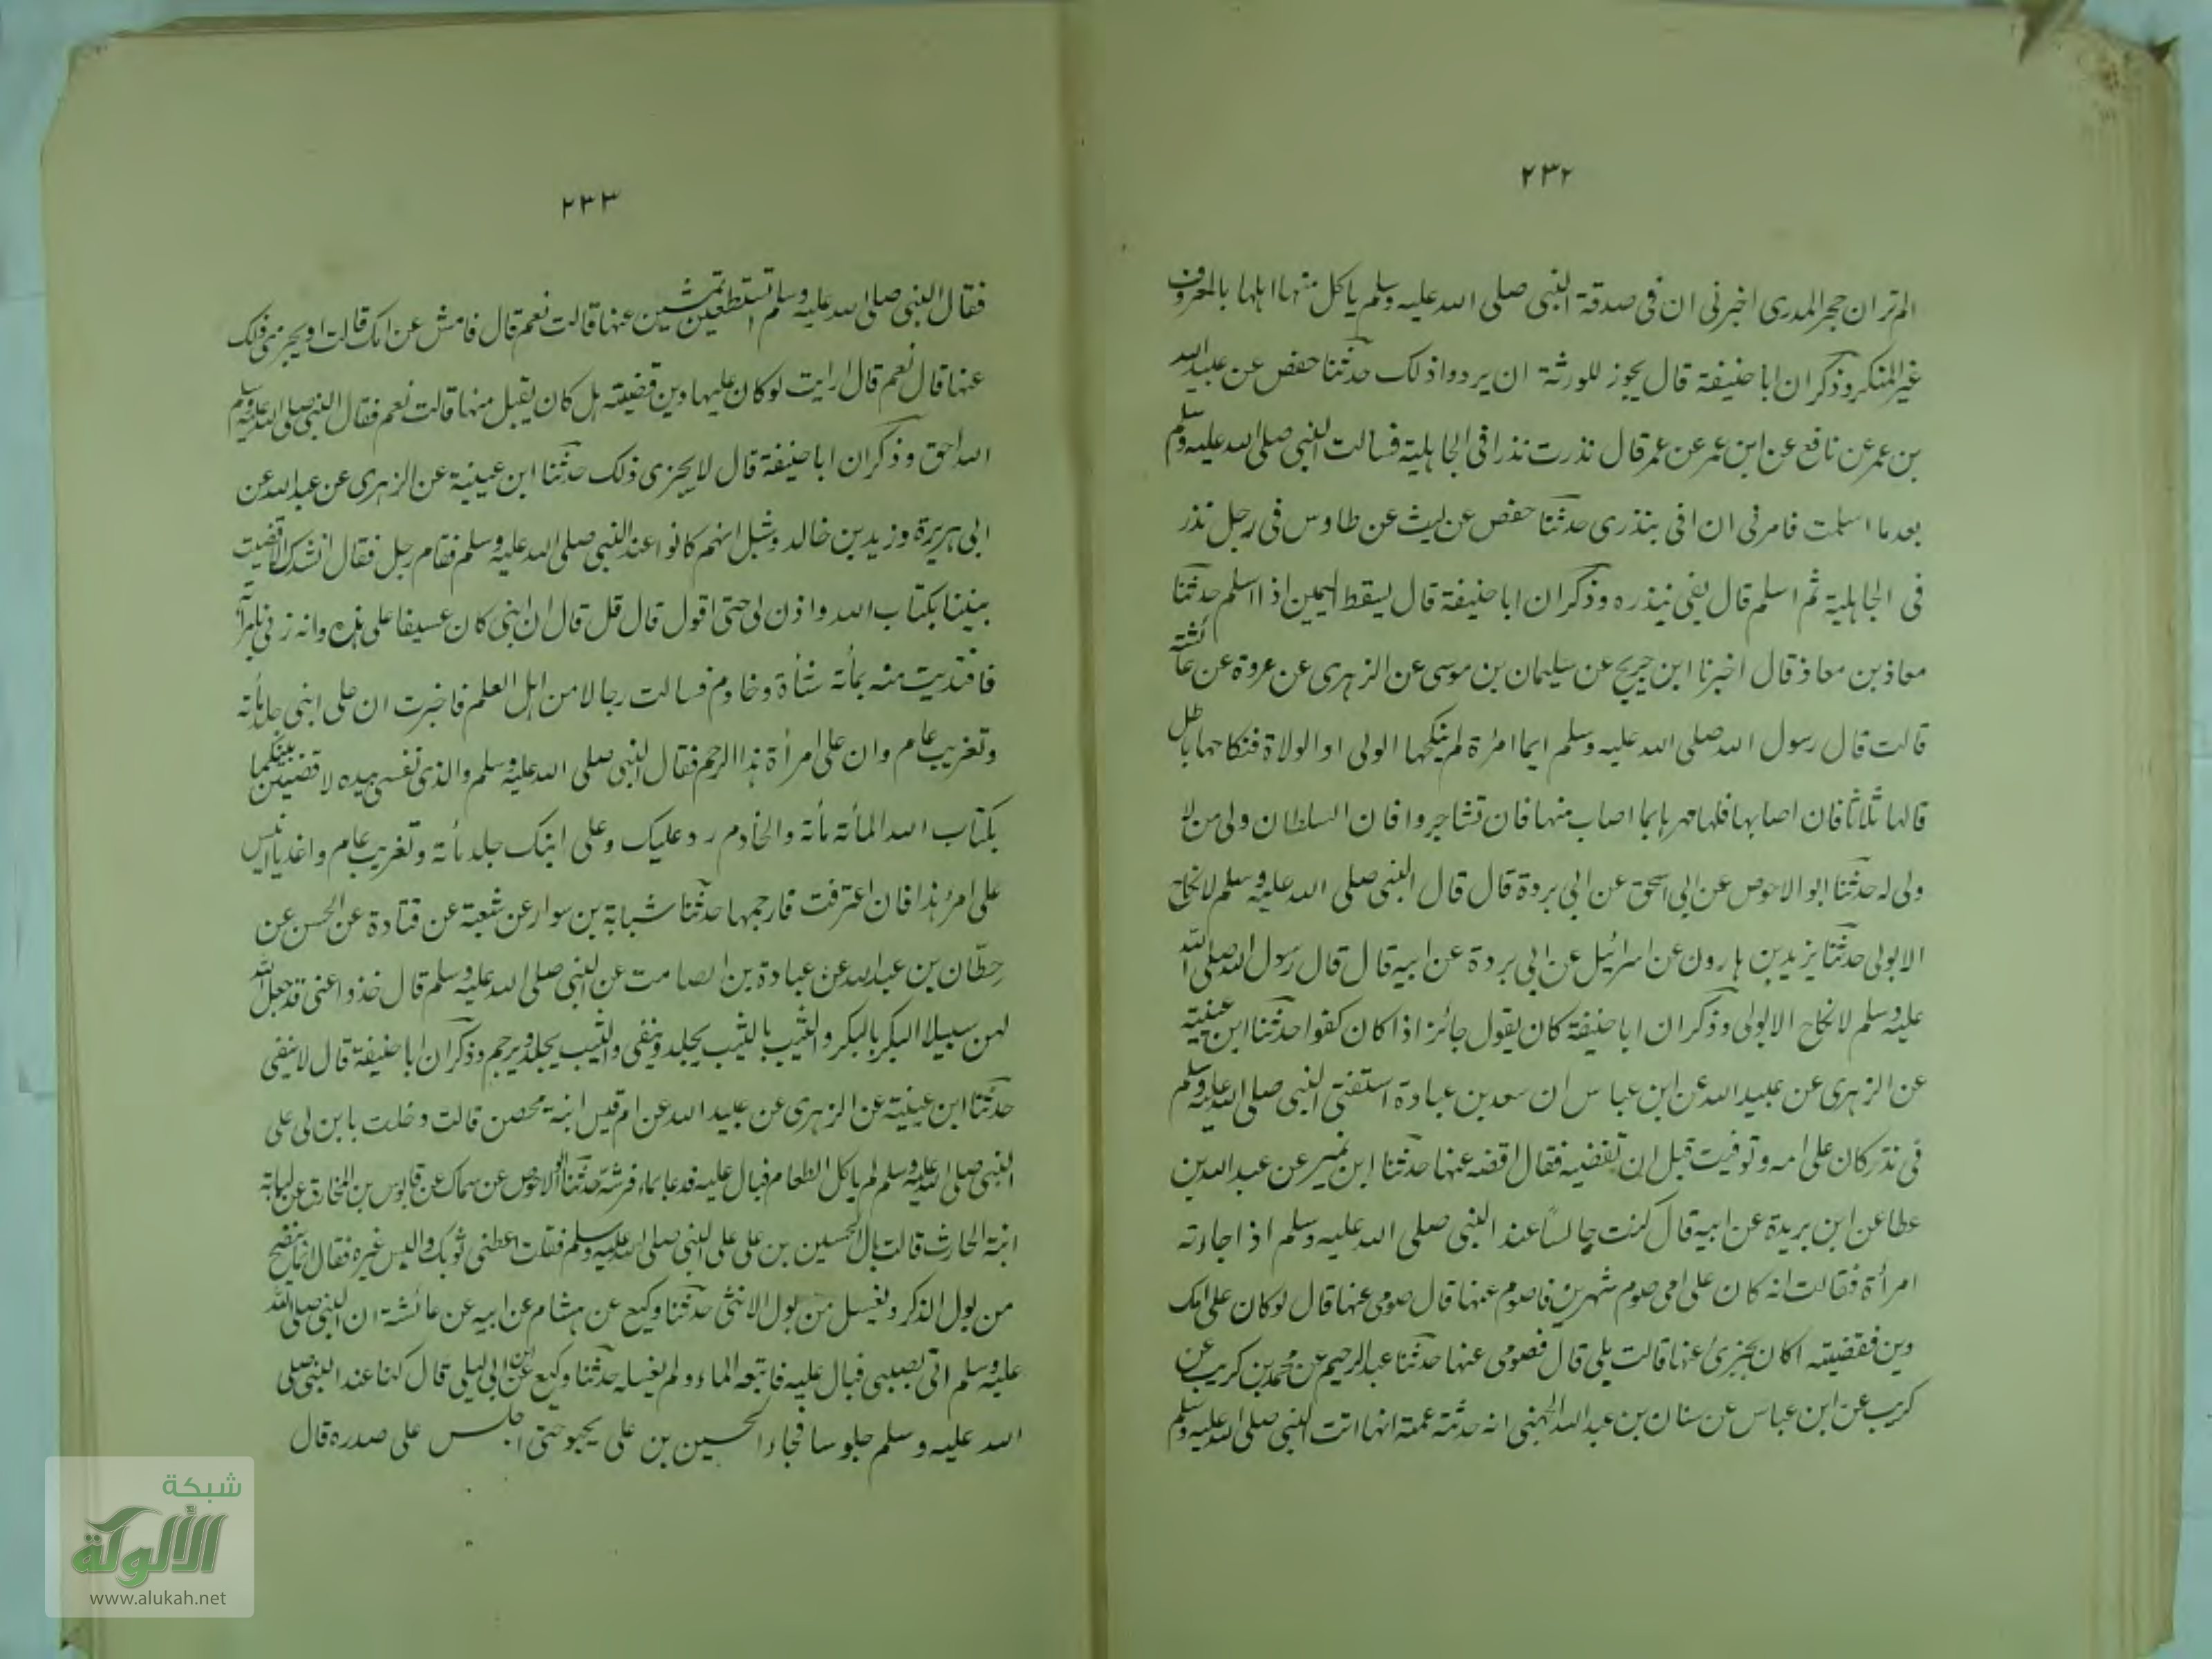 ٢٣٢
الم تر ان حجر المدرى اخبرنى ان فى صدقة النبى صلى الله عليه وسلم ياكل منها اهلها بالمعروف
غير المنكر وذكر ان ابا حنيفة قال يجوز للورثة ان يردوا ذلك حدثنا حفص عن عبيد الله
بن عمر عن نافع عن ابن عمر عن عمر قال نذرت نذرا فى الجاهلية فسالت النبى صلى الله عليه وسلم
بعد ما اسلمت فامرنى ان افى بنذرى حدثنا حفص عن ليث عن طاوس فى رجل نذر
فى الجاهلية ثم اسلم قال يفى بنذره وذكر ان ابا حنيفة قال يسقط اليمين اذا اسلم حدثنا
معاذ بن معاذ قال اخبرنا ابن جريج عن سليمان بن موسى عن الزهرى عن عروة عن عائشة
قالت قال رسول الله صلى الله عليه وسلم ايما امرٔة لم ينكحها الولى او الولاة فنكاحها باطل
قالها ثلاثا فان اصابها فلها مهرها بما اصاب منها فان تشاجروا فان السلطان ولى من لا
ولى له حدثنا ابو الاحوص عن ابى اسحق عن ابى بردة قال قال النبى صلى الله عليه وسلم لا نكاح
الا بولى حدثنا يزيد بن هارون عن اسرائيل عن ابى بردة عن ابيه قال قال رسول الله صلى الله
عليه وسلم لا نكاح الا بولى وذكر ان ابا حنيفة كان يقول جائز اذا كان كفوا حدثنا ابن عيينة
عن الزهرى عن عبيد الله عن ابن عباس ان سعد بن عبادة استفتى النبى صلى الله عليه وسلم
فى نذر كان على امه وتوفيت قبل ان تقضيه فقال اقضه عنها حدثنا ابن نمير عن عبد الله بن
عطا عن ابن بريدة عن ابيه قال كنت جالسًا عند النبى صلى الله عليه وسلم اذ اجاءته
امرأة فقالت انه كان على امى صوم شهرين فاصوم عنها قال صومى عنها قال لو كان على امك
دين فقضيته اكان يجزئ عنها قالت بلى قال فصومى عنها حدثنا عبد الرحيم عن محمد بن كريب عن
كريب عن ابن عباس عن سنان بن عبد الله الجهنى انه حدثته عمته انها اتت النبى صلى الله عليه وسلم
٢٣٣
فقال النبى صلى الله عليه وسلم اتستطعين تمشين عنها قالت نعم قال فامش عن امك قالت او يجزى ذلك
عنها قال نعم قال ارايت لو كان عليها دين قضيته هل كان يقبل منها قالت نعم فقال النبى صلى الله عليه وسلم
الله احق وذكر ان ابا حنيفة قال لا يجزى ذلك حدثنا ابن عيينة عن الزهرى عن عبد الله عن
ابى هريرة وزيد بن خالد وشبل انهم كانوا عند النبى صلى الله عليه وسلم فقام رجل فقال انشدك الا قضيت
بيننا بكتاب الله واذن لى حتى اقول قال قل قال ان ابنى كان عسيفا على هذا وانه زنى بامرأته
فافتديت منه بمأئة شأة وخادم فسالت رجالا من اهل العلم فاخبرت ان على ابنى جلد مأئة
وتغريب عام وان على امرأة هذا الرجم فقال النبى صلى الله عليه وسلم والذى نفسى بيده لا قضين بينكما
بكتاب الله المأئة مأئة والخادم رد عليك وعلى ابنك جلد مأئة وتغريب عام واغد يا انيس
على امرٔ هذا فان اعترفت فارجمها حدثنا شبابة بن سوار عن شعبة عن قتادة عن الحسن عن
حطّان بن عبد الله عن عبادة بن الصامت عن النبى صلى الله عليه وسلم قال خذوا عنى قد جعل الله
لهن سبيلا البكر بالبكر والثيب بالثيب يجلد وينفى والثيب يجلد ويرجم وذكر ان ابا حنيفة قال لا ينفى
حدثنا ابن عيينة عن الزهرى عن عبيد الله عن ام قيس ابنة محصن قالت دخلت بابن لى على
النبى صلى الله عليه وسلم لم ياكل الطعام فبال عليه فدعا بماء فرشه حدثنا ابو الاحوص عن سماك عن قابوس بن المخارق عن لبابة
ابنة الحارث قالت بال الحسين بن على على النبى صلى الله عليه وسلم فقلت اعطنى ثوبك والبس غيره فقال انما ينضح
من بول الذكر ويغسل من بول الانثى حدثنا وكيع عن هشام عن ابيه عن عائشة ان النبى صلى الله
عليه وسلم اتى بصبى فبال عليه فاتبعه الماء ولم يغسله حدثنا وكيع عن ابن ابى ليلى قال كنا عند النبى صلى
الله عليه وسلم جلوسا فجاء الحسين بن على يحبو حتى اجلس على صدره قال
شبكة
الألوكة
www.alukah.net